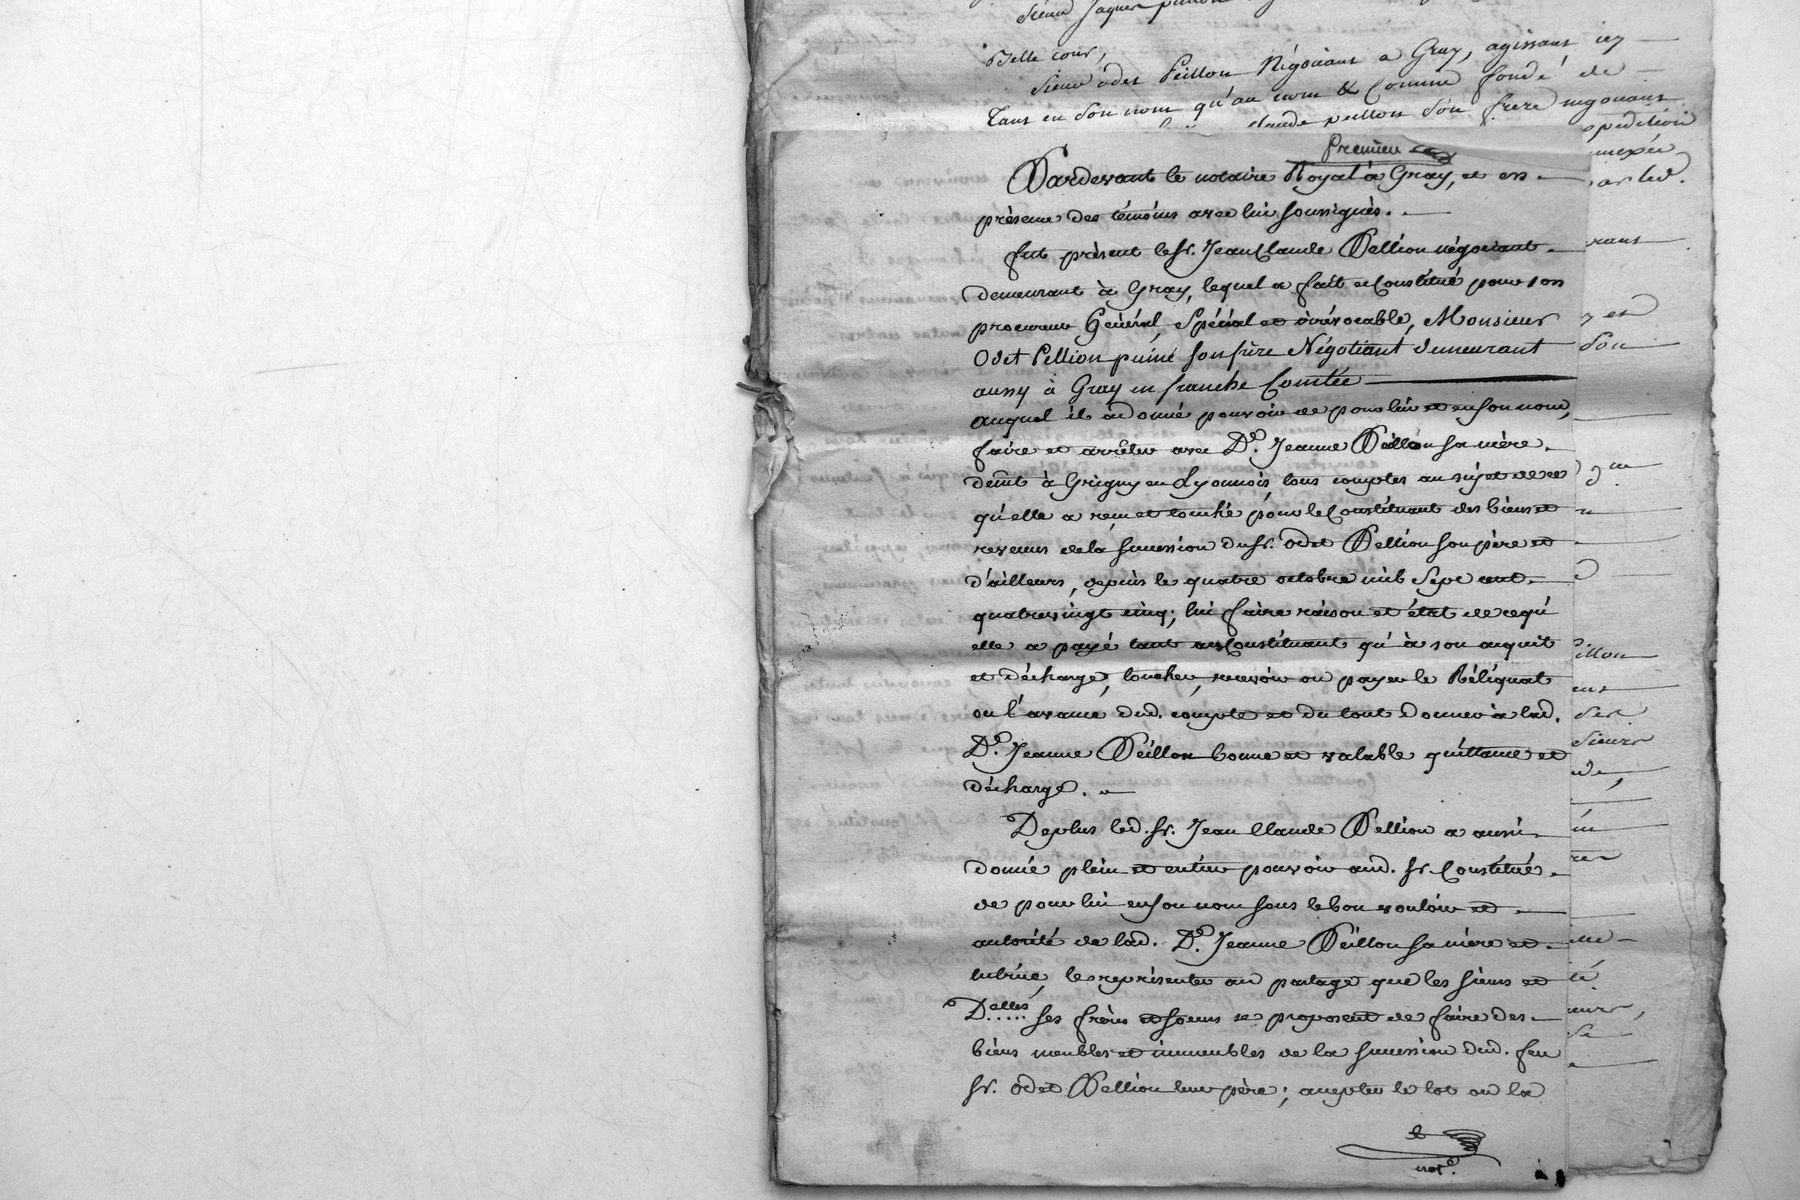 Sieur Jaques
Belle cour,
Sieur odet Peillon Négociant a Gray, agissant icy
Tant en son nom qu'au nom & Comme fondé de
claude peillon son frere negotiant
Premier
Pardevant le notaire Royal à Gray, et en
présence des témoins avec lui soussignés.
fut présent le sr. Jean Claude Pellion négociant
demeurant à Gray, lequel a fait et Constitué pour son
procureur Général, Spécial et irrévocable, Monsieur
Odet Pellion puiné son frère Négotiant demeurant
aussy à Gray en franche Comtée
auquel il a donné pouvoir de pour lui et en son nom,
faire et arrêter avec De. Jeanne Peillon sa mère
demt à Grigny en Lyonnois, tous comptes au sujet de ce
qu'elle a reçu et touché pour le Constituant des biens et
revenus de la succession du sr. odet Pellion son père et
d'ailleurs, depuis le quatre octobre mil Sept cent
quatrevingt cinq; lui faire raison et état de ce qu'
elle a payé tant au Constituant qu'à son acquit
et décharge, toucher, recevoir ou payer le Réliquat
ou l'avance dud. compte et du tout donner à lad.
De. Jeanne Peillon bonne et valable quittance et
décharge.
Deplus led. sr. Jean Claude Pellion a aussi
donné plein et entier pouvoir aud. sr. Constitué
de pour lui en son nom sous le bon vouloir et
autorité de lad. De. Jeanne Peillon sa mère et
tutrice, le représenter au partage que les sieurs et
Delles ses frères et soeurs se proposent de faire des
biens meubles et immeubles de la succession dud. feu
sr. odet Pellion leur père; accepter le lot ou la
notre.